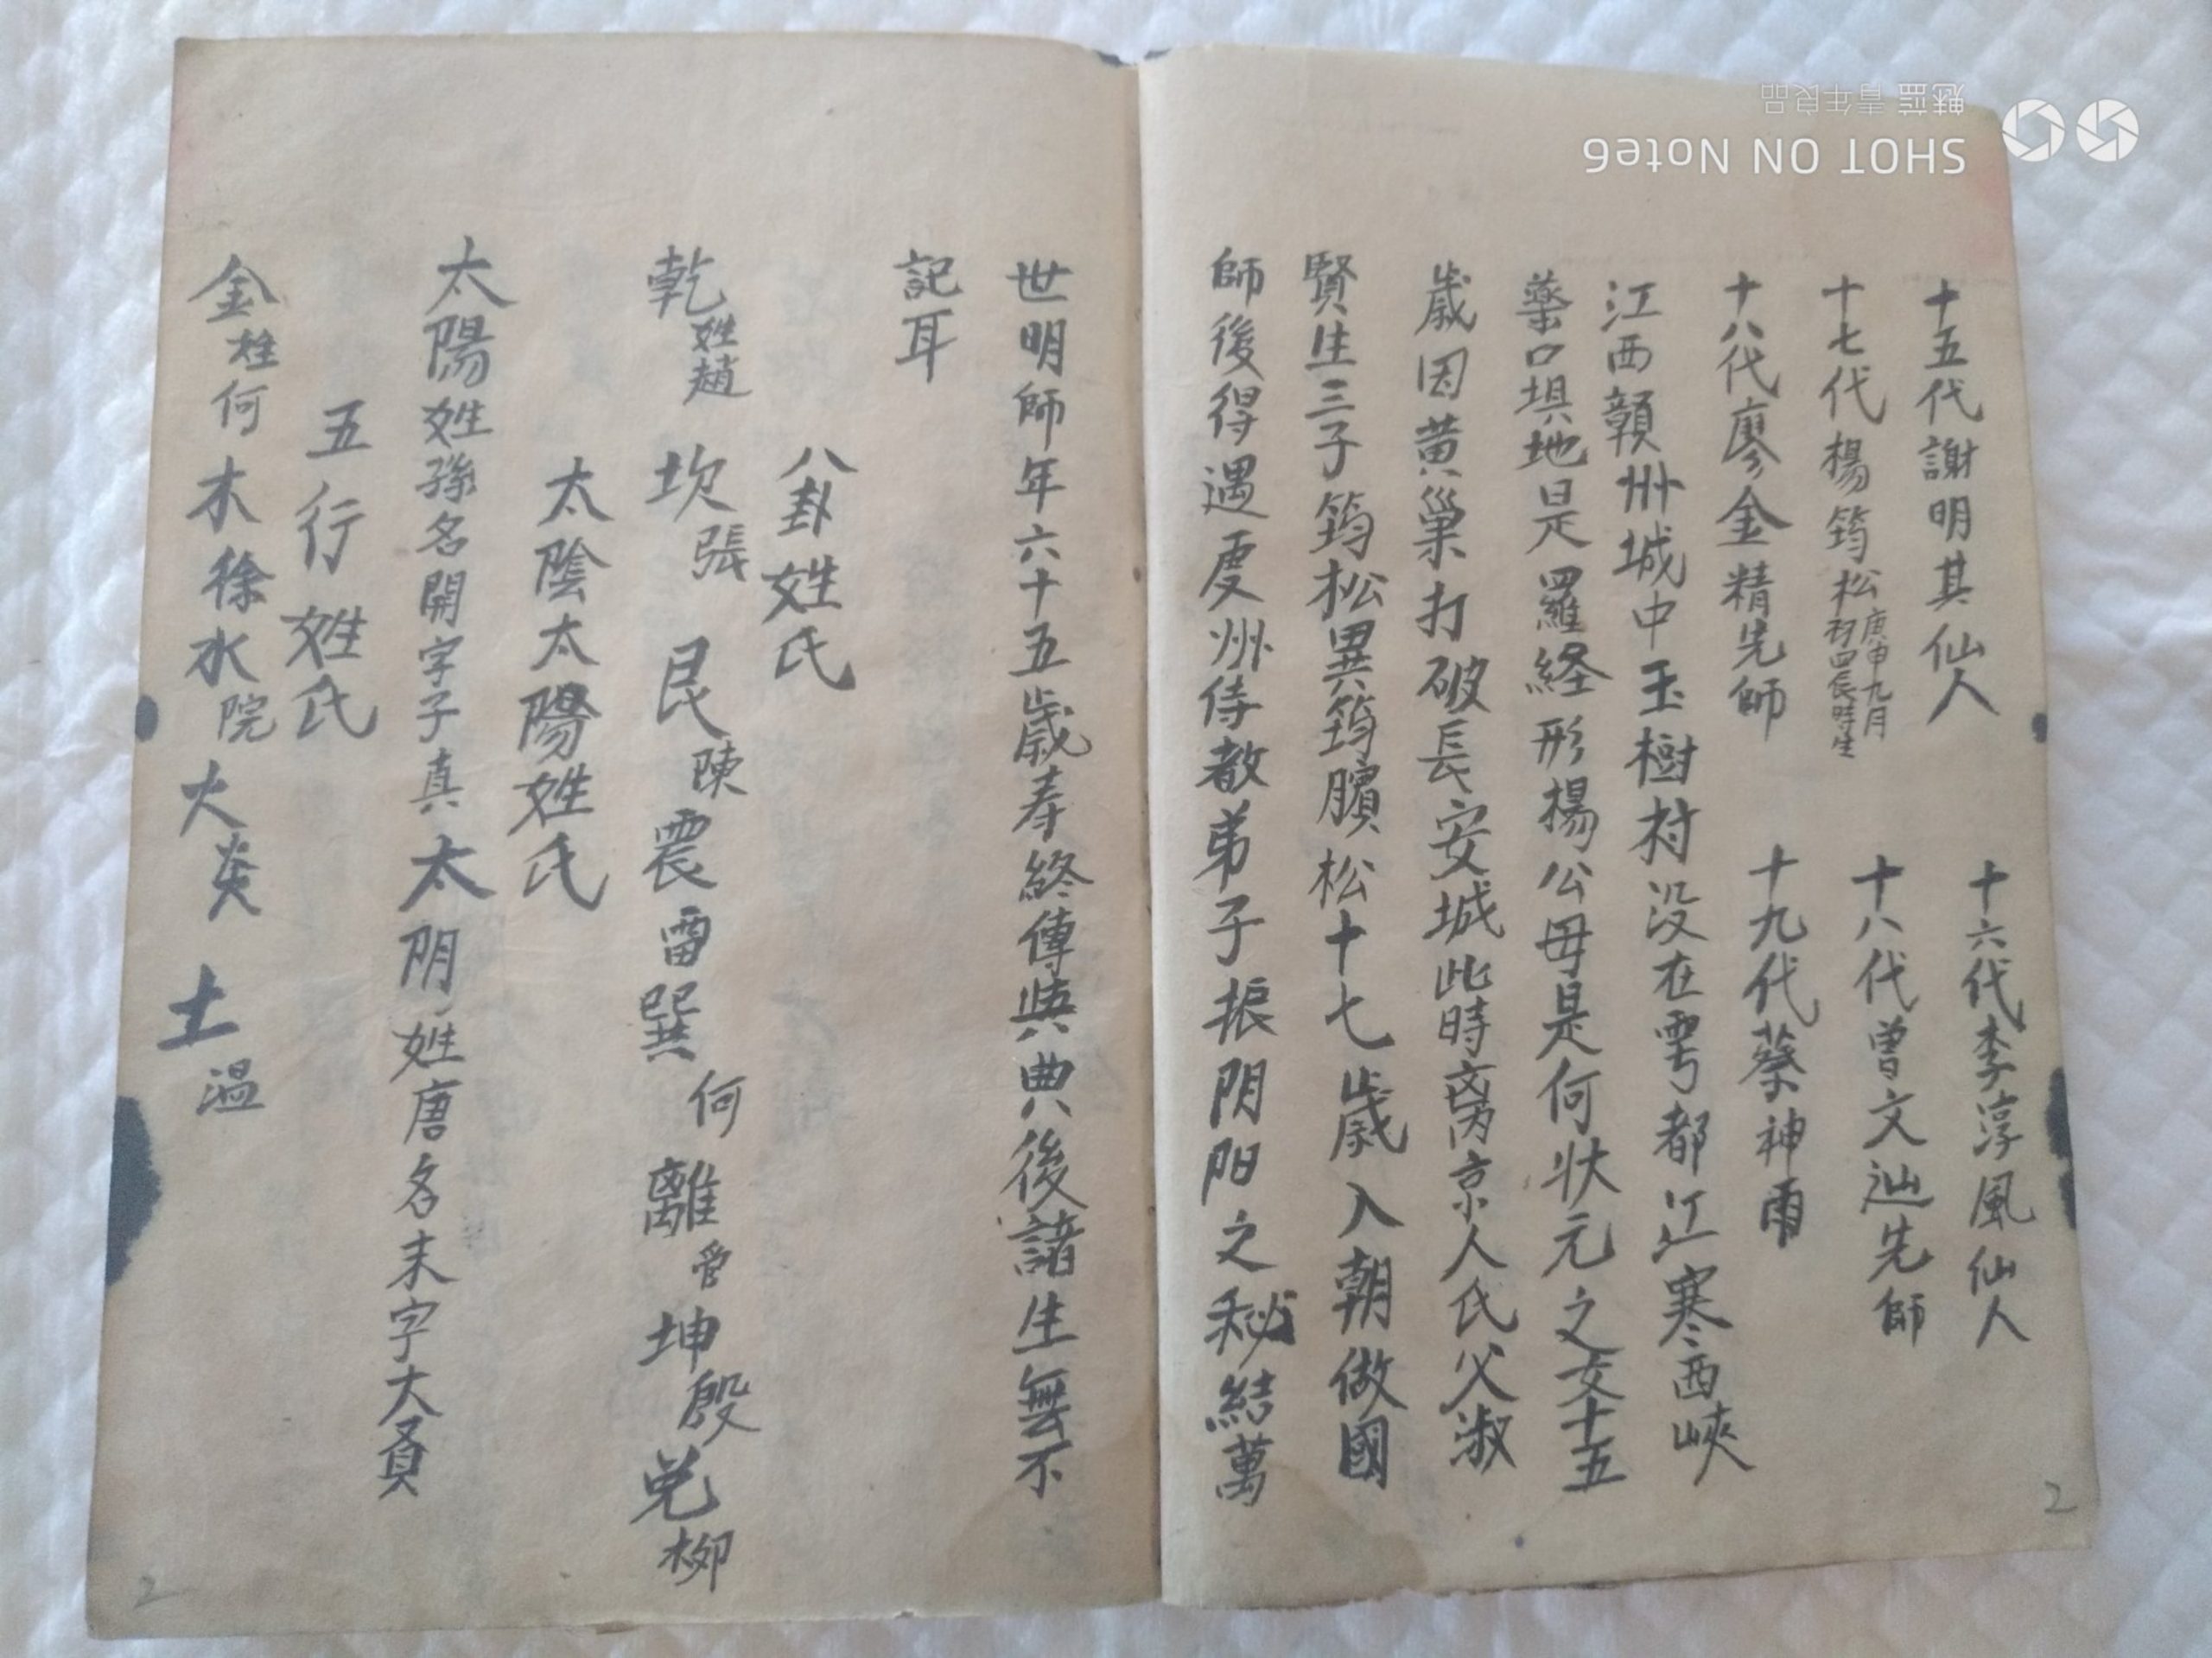 十五代謝明其仙人 十六代李淳風仙人
十七代楊筠松庚申九月初四辰時生 十八代曾文辿先師
十八代廖金精先師 十九代蔡神雨
江西贛州城中玉樹村没在雩都江寒西峽
藥口垻地是羅経形楊公母是何状元之女十五
歳因黄巢打破長安城此時京人氏父淑
賢生三子筠松異筠臏松十七歳入朝做國
師後得遇虔州侍教弟子振阴阳之秘結萬
世明師年六十五歳寿終傳與典後諸生無不
記耳
八卦姓氏
乾姓趙 坎張 艮陳 震雷 巽何 離管 坤殷 兌柳
太陰太陽姓氏
太陽姓孫名開字子真 太阴姓唐名末字大貟
五行姓氏
金姓何 木徐 水院 火炎 土温
2
2
SHOT ON Note6
魅蓝 青年良品